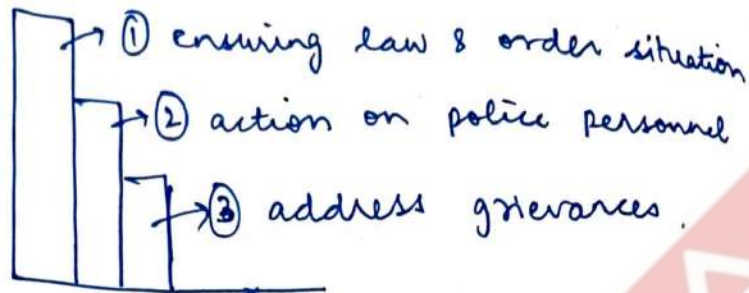 ① ensuring law & order situation
② action on police personnel
③ address grievances.